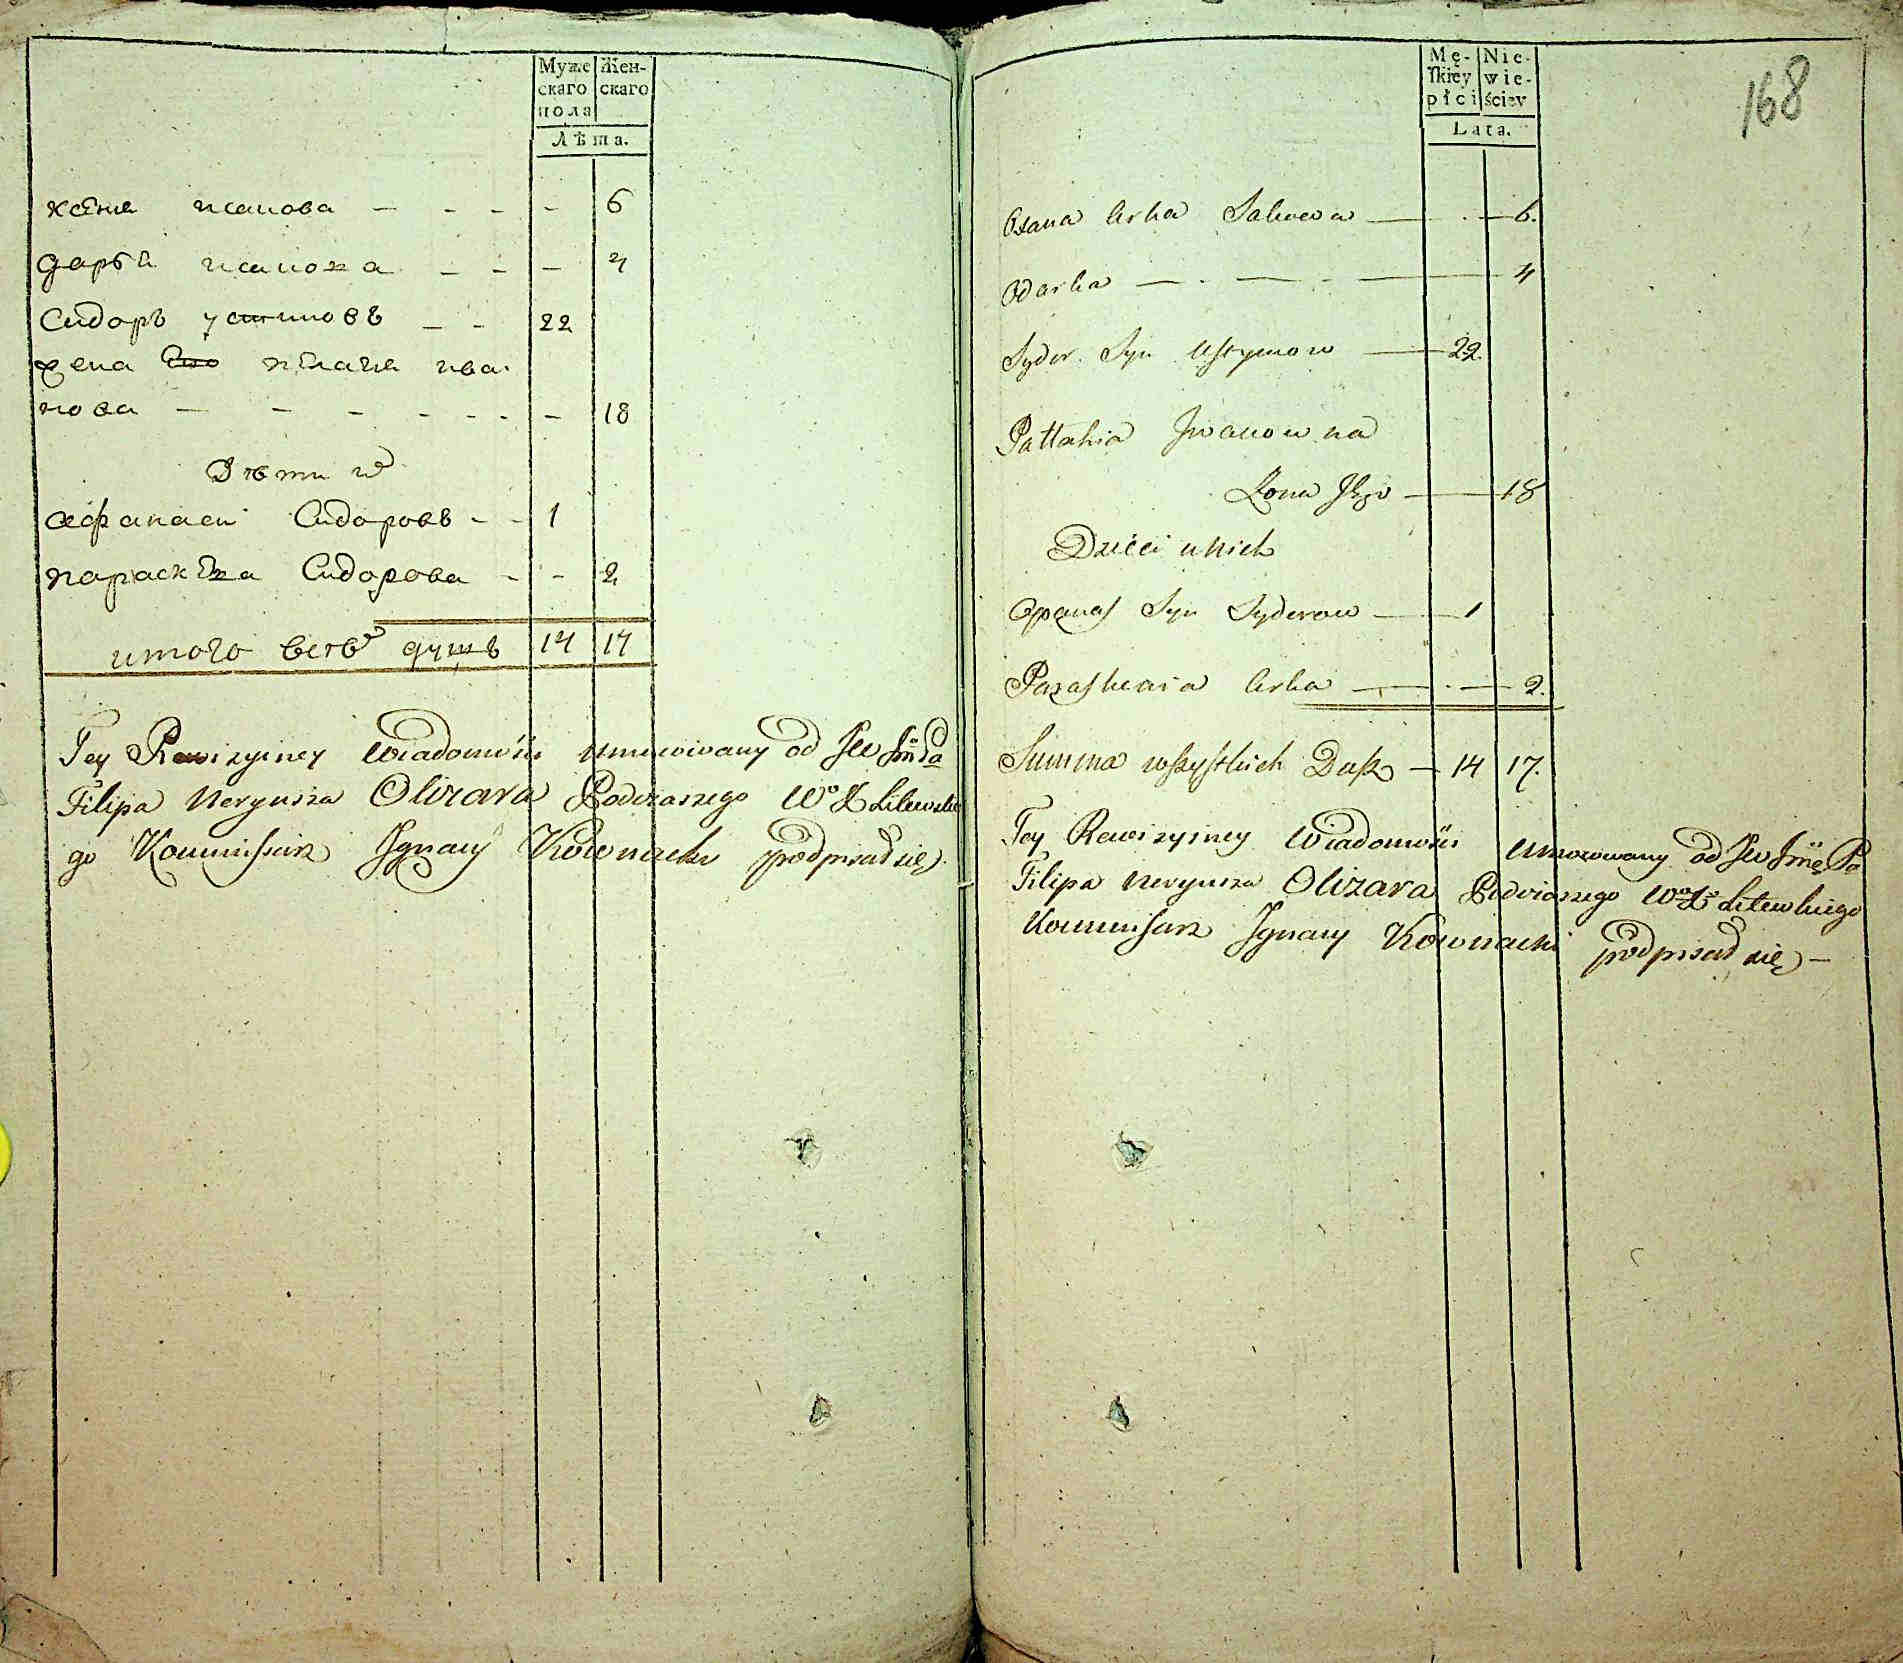 Муже Жен-
скаго скаго
пола
Лѣта.
ксеня исакова - - - - 6
дарья исакова - - - 4
Сидоръ устиновъ - - 22
жена его пелагея ива
нова - - - - - - - 18
Дѣти их
афанасей Сидоровъ - - 1
параскева Сидорова - - 2
итого всехъ душъ 14 17
Tey Rewizyiney Wiadomości umocowany od JW Jmć Pa
Filipa Neryusza Olizara Podczaszego Wo X Litewskie
go Kommissarz Ignacy Kownacki podpisał się
Mę- Nie-
ſkiey wie-
płci ściey
Lata.
168
Oxana Corka Sakowa - 6.
Odarka - - - 4
Syder Syn Ustymow - 22.
Pallahia Jwanowna
Żona Jego - 18
Dzieci u Nich
Opanas Syn Syderow - 1
Paraskewia Corka - 2.
Summa wszystkich Dusz - 14 17.
Tey Rewizyiney Wiadomości umocowany od JW Jmć Pa
Filipa Neryusza Olizara Podczaszego Wo X Litewskiego
Kommisarz Ignacy Kownacki podpisał się -